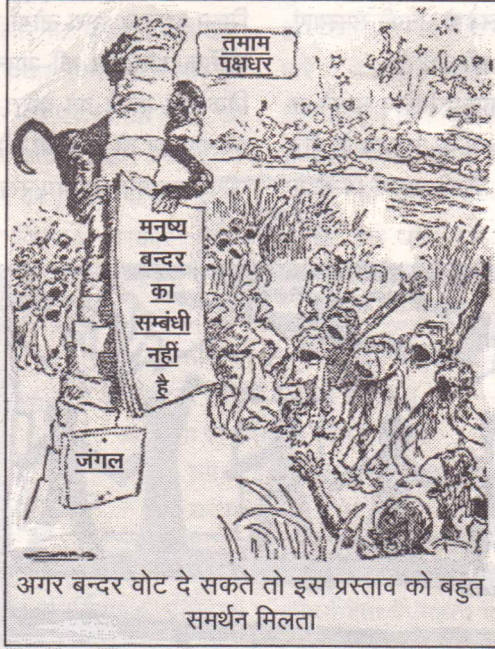 तमाम
पक्षधर
मनुष्य
बन्दर
का
सम्बंधी
नहीं
है
जंगल
अगर बन्दर वोट दे सकते तो इस प्रस्ताव को बहुत
समर्थन मिलता